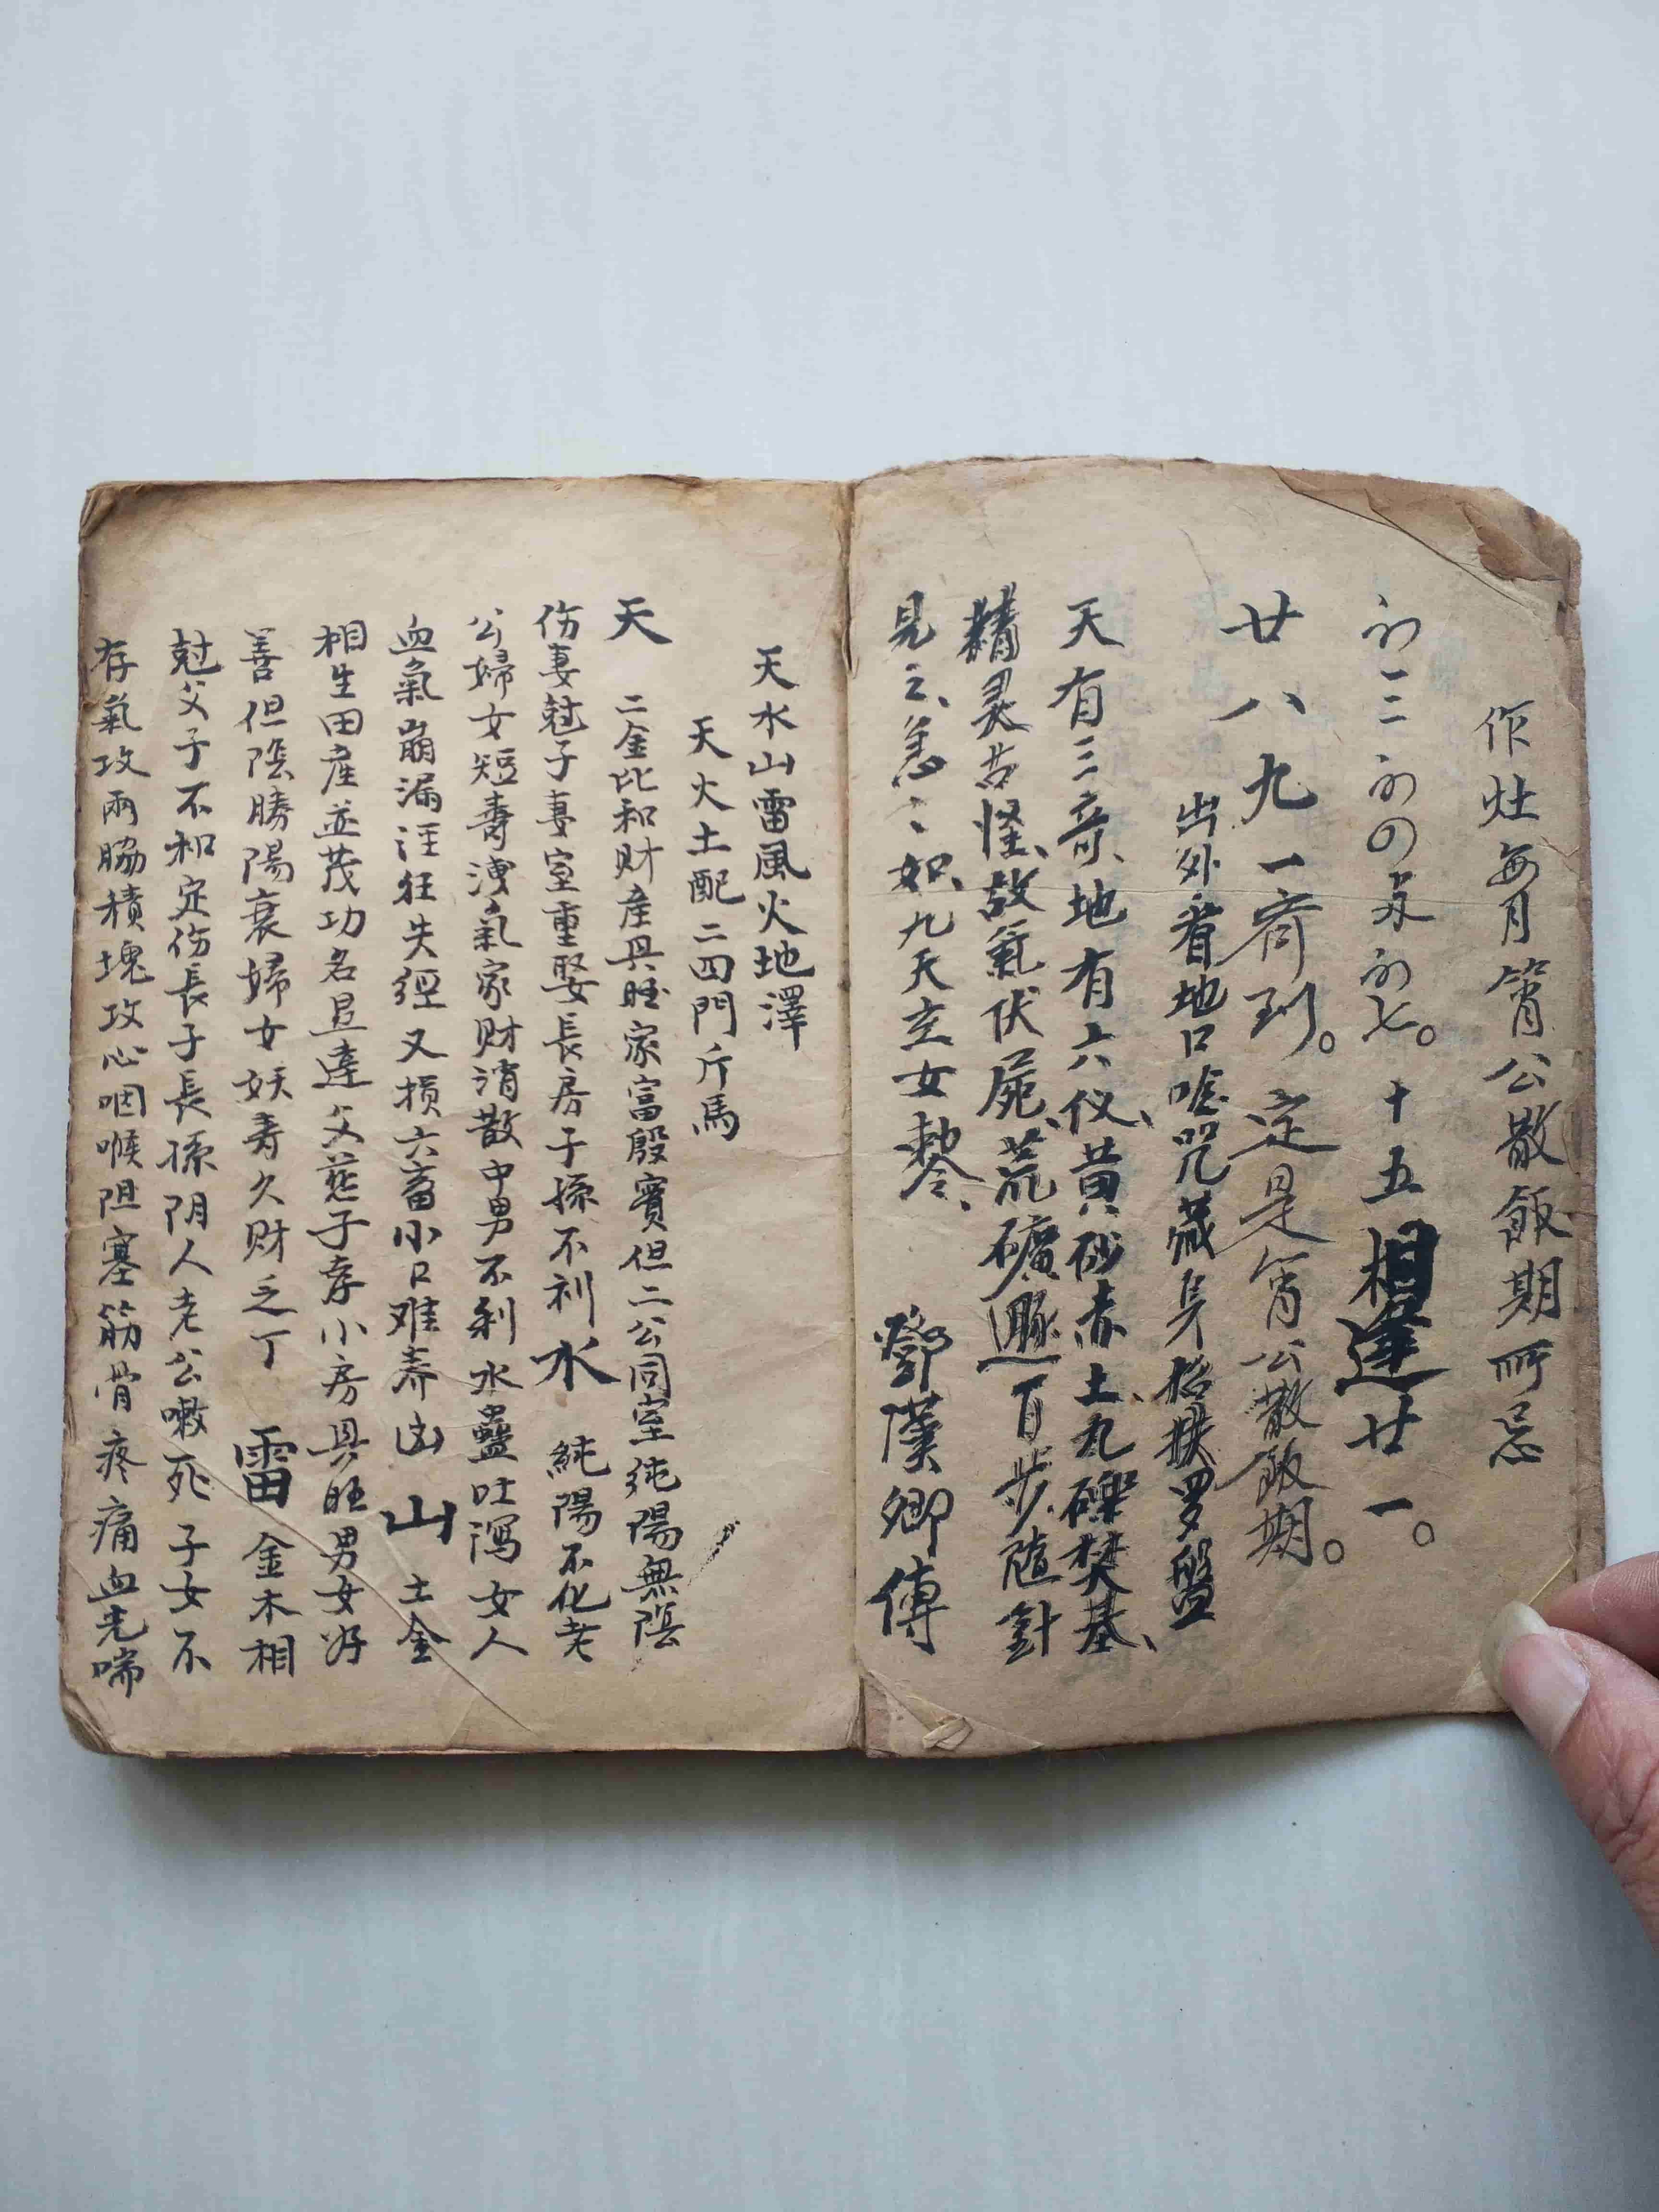 作灶每月宵公散飯期所忌
初二三初四并初七。十五相逢廿一。
廿八九一齊到。定是宵公散飯期。
出外看地口唸咒藏身招扶罗盤
天有三奇、地有六仪、黄砂赤土、瓦礫焚基、
精灵古怪、故氣伏屍、荒礦百步、随針
見之、急〻如、九天玄女勑令、 鄧漢卿傳
天水山雷風火地澤
天火土配二四門斤馬
天 二金比和财産具旺家富殷實但二公同室纯陽無陰
伤妻尅子妻室重娶長房子孫不利 水 純陽不化老
公婦女短壽洩氣家财消散中男不利水蠱吐瀉女人
血氣崩漏汪狂失經又损六畜小口难养凶 山 土金
相生田産並茂功名显達父慈子孝小房具旺男女好
善但陰勝陽衰婦女妖寿久财乏丁 雷 金木相
尅父子不和定伤長子長孫阴人老公嗽死子女不
存氣攻兩脇積塊攻心咽喉阻塞筋骨疼痛血光喘